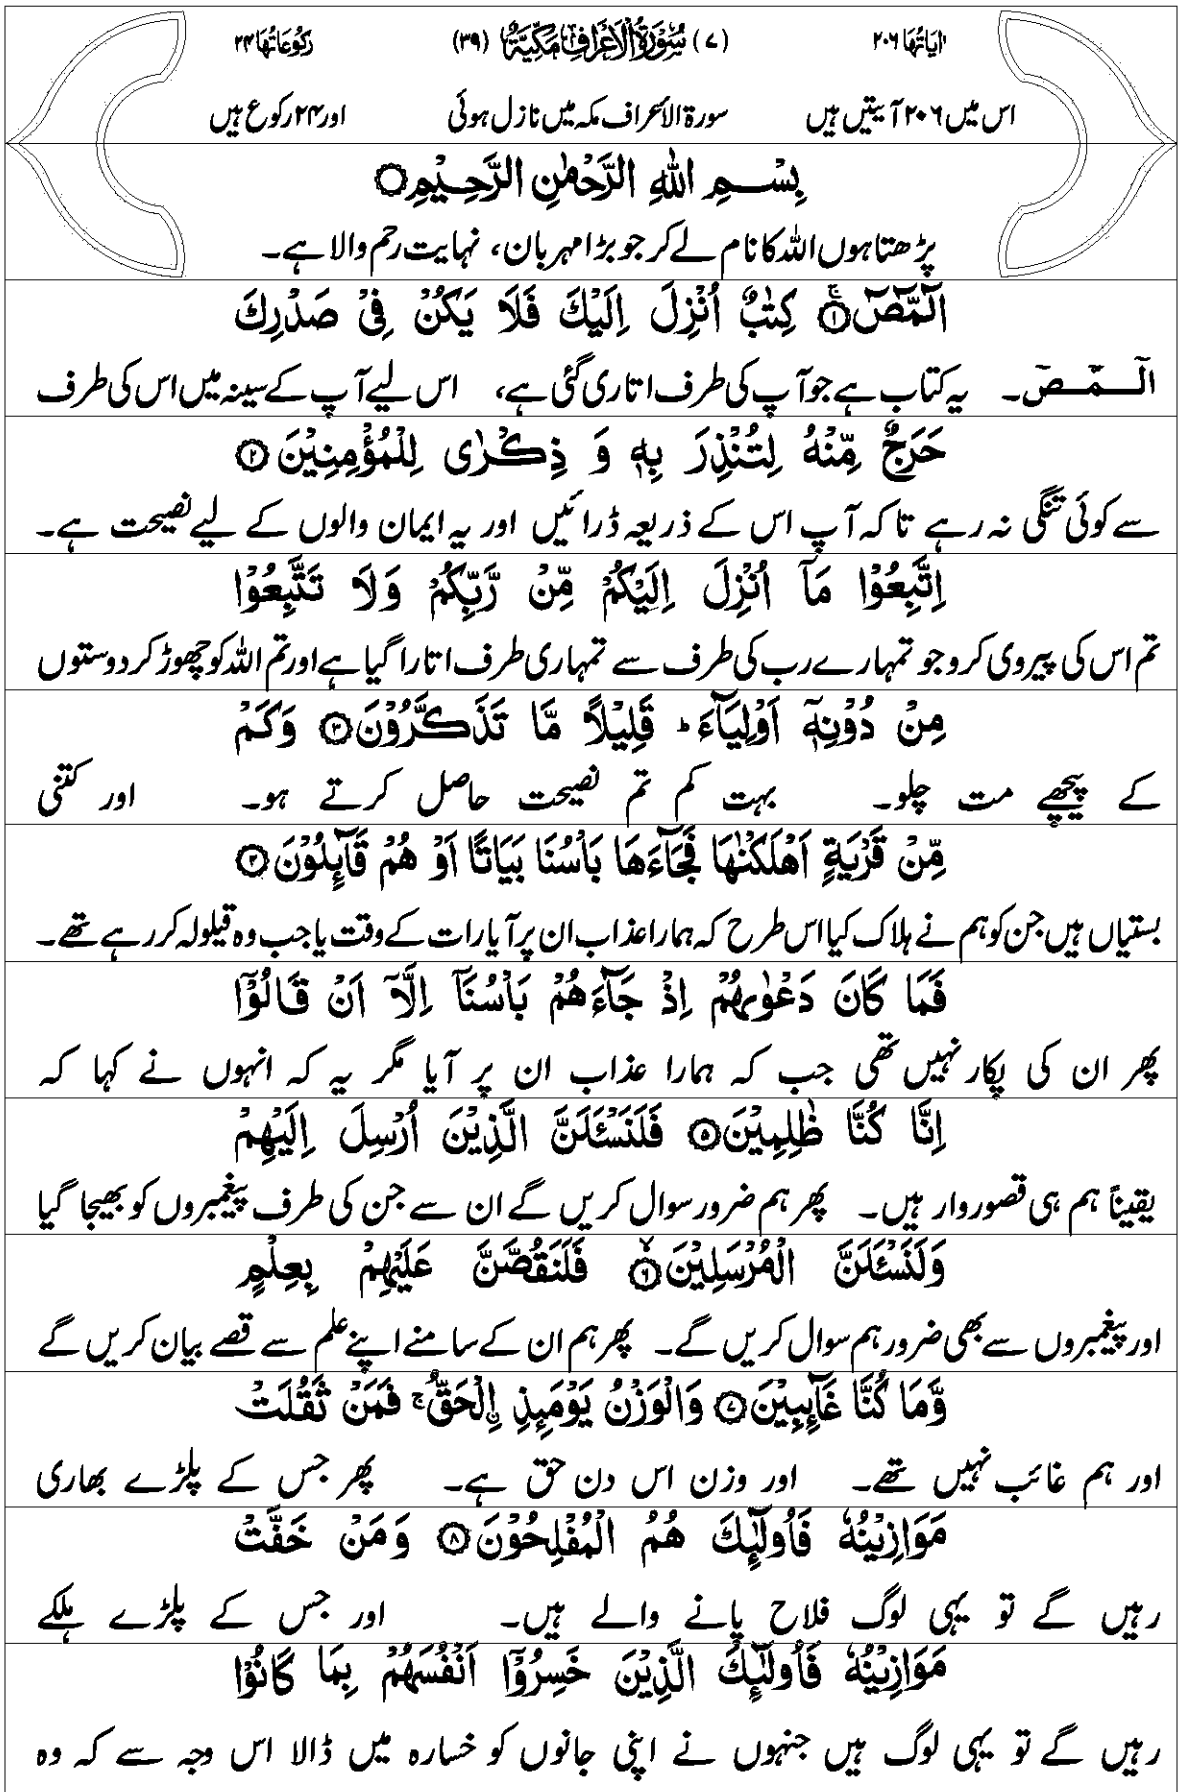 اٰيَاتُهَا ٢٠٦ (٧) سُوْرَةُ الْاَعْرَافِ مَكِّيَّةٌ (٣٩) رُكُوْعَاتُهَا ٢٤
اس میں ۲۰۶ آیتیں ہیں سورۃ الاعراف مکہ میں نازل ہوئی اور ۲۴ رکوع ہیں
بِسْــمِ اللّٰهِ الرَّحْمٰنِ الرَّحِـيْمِ۝
پڑھتا ہوں اللہ کا نام لے کر جو بڑا مہربان، نہایت رحم والا ہے۔
الٓمّٓصٓ۝١ۚ كِتٰبٌ اُنْزِلَ اِلَيْكَ فَلَا يَكُنْ فِيْ صَدْرِكَ
الٓـــمّٓــصٓ۔ یہ کتاب ہے جو آپ کی طرف اتاری گئی ہے، اس لیے آپ کے سینہ میں اس کی طرف
حَرَجٌ مِّنْهُ لِتُنْذِرَ بِهٖ وَ ذِكْرٰى لِلْمُؤْمِنِيْنَ۝٢
سے کوئی تنگی نہ رہے تاکہ آپ اس کے ذریعہ ڈرائیں اور یہ ایمان والوں کے لیے نصیحت ہے۔
اِتَّبِعُوْا مَآ اُنْزِلَ اِلَيْكُمْ مِّنْ رَّبِّكُمْ وَلَا تَتَّبِعُوْا
تم اس کی پیروی کرو جو تمہارے رب کی طرف سے تمہاری طرف اتارا گیا ہے اور تم اللہ کو چھوڑ کر دوستوں
مِنْ دُوْنِهٖٓ اَوْلِيَآءَ ؕ قَلِيْلًا مَّا تَذَكَّرُوْنَ۝٣ وَكَمْ
کے پیچھے مت چلو۔ بہت کم تم نصیحت حاصل کرتے ہو۔ اور کتنی
مِّنْ قَرْيَةٍ اَهْلَكْنٰهَا فَجَآءَهَا بَاْسُنَا بَيَاتًا اَوْ هُمْ قَآئِلُوْنَ۝٤
بستیاں ہیں جن کو ہم نے ہلاک کیا اس طرح کہ ہمارا عذاب ان پر آیا رات کے وقت یا جب وہ قیلولہ کر رہے تھے۔
فَمَا كَانَ دَعْوٰىهُمْ اِذْ جَآءَهُمْ بَاْسُنَآ اِلَّآ اَنْ قَالُوْٓا
پھر ان کی پکار نہیں تھی جب کہ ہمارا عذاب ان پر آیا مگر یہ کہ انہوں نے کہا کہ
اِنَّا كُنَّا ظٰلِمِيْنَ۝٥ فَلَنَسْئَلَنَّ الَّذِيْنَ اُرْسِلَ اِلَيْهِمْ
یقیناً ہم ہی قصوروار ہیں۔ پھر ہم ضرور سوال کریں گے ان سے جن کی طرف پیغمبروں کو بھیجا گیا
وَلَنَسْئَلَنَّ الْمُرْسَلِيْنَ۝٦ۙ فَلَنَقُصَّنَّ عَلَيْهِمْ بِعِلْمٍ
اور پیغمبروں سے بھی ضرور ہم سوال کریں گے۔ پھر ہم ان کے سامنے اپنے علم سے قصے بیان کریں گے
وَّمَا كُنَّا غَآئِبِيْنَ۝٧ وَالْوَزْنُ يَوْمَئِذِ ِۨالْحَقُّ ۚ فَمَنْ ثَقُلَتْ
اور ہم غائب نہیں تھے۔ اور وزن اس دن حق ہے۔ پھر جس کے پلڑے بھاری
مَوَازِيْنُهٗ فَاُولٰٓئِكَ هُمُ الْمُفْلِحُوْنَ۝٨ وَمَنْ خَفَّتْ
رہیں گے تو یہی لوگ فلاح پانے والے ہیں۔ اور جس کے پلڑے ہلکے
مَوَازِيْنُهٗ فَاُولٰٓئِكَ الَّذِيْنَ خَسِرُوْٓا اَنْفُسَهُمْ بِمَا كَانُوْا
رہیں گے تو یہی لوگ ہیں جنہوں نے اپنی جانوں کو خسارہ میں ڈالا اس وجہ سے کہ وہ